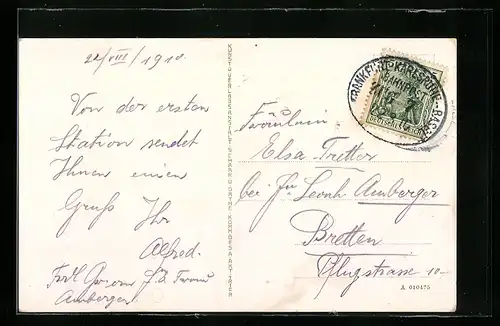 22/VIII/1910.
Von der ersten
Station sendet
Ihnen einen
Gruß Ihr
Alfred.
Amberger
KUNSTVERLAGSANSTALT SCHAAR & DATHE, KOMM.-GES. A. AKT. TRIER
FRANKFURT-KARLSRUHE-BASEL
DEUTSCHES REICH
Fräulein
Elsa Tretter
bei Leonh Amberger
Bretten
Pflugstrasse 10-
A 010475